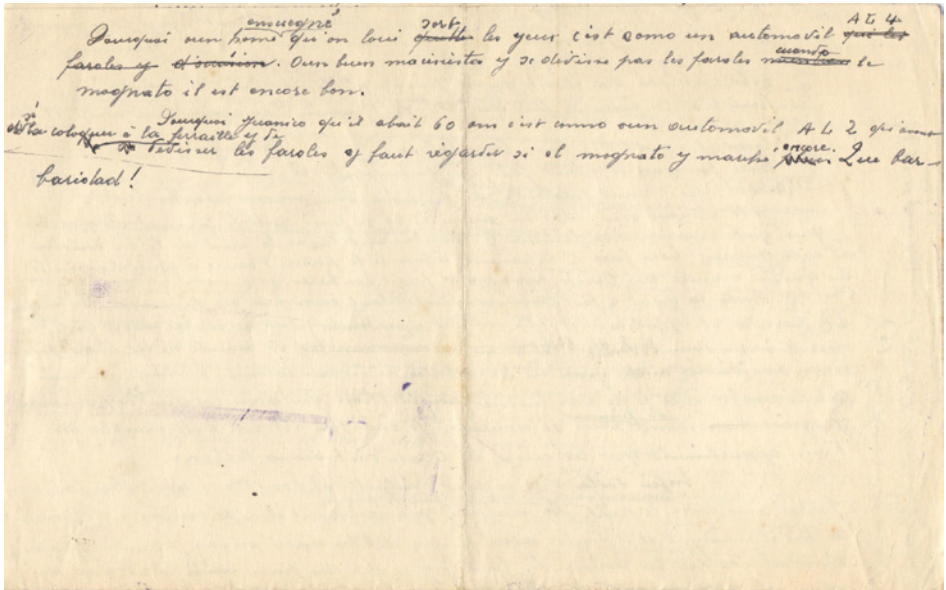 emuegné sort A L 4
Pourquoi oun homé qu'on loui quitte les yeux c'est como un automovil qui les
faroles y d'ocasion. Oun bun macanista y se divisse pas les faroles cuando le
magnato il est encore bon.
Pourquoi Juanico qu'il abait 60 ans c'est como oun automovil A L 2 qui avant
de la coloquer à la ferraille y de
devisser les faroles y faut régarder si el magnato y marche encore. Que bar-
baridad!